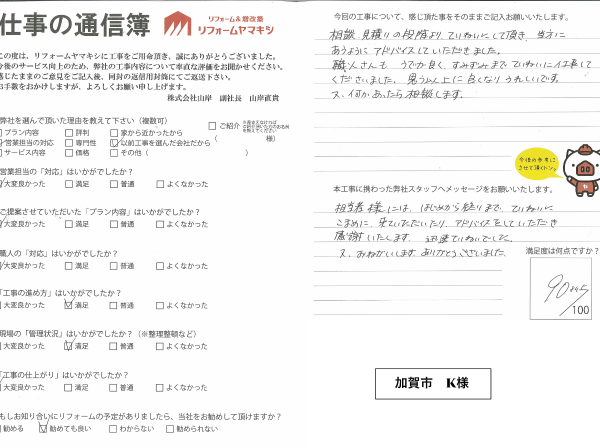 仕事の通信簿
リフォーム&増改築
リフォームヤマキシ
この度は、リフォームヤマキシに工事をご用命頂き、誠にありがとうございました。
今後のサービス向上のため、弊社の工事内容について率直な評価をお聞かせください。
感じたままのご意見をご記入後、同封の返信用封筒にてご返送下さい。
お手数をおかけしますが、よろしくお願い申し上げます。
株式会社山岸 副社長 山岸直貴
弊社を選んで頂いた理由を教えて下さい（複数可）
プラン内容 評判 家から近かったから ご紹介
営業担当の対応 専門性 以前工事を選んだ会社だから（ 様）
サービス内容 価格 その他（ ）
営業担当の「対応」はいかがでしたか？
大変良かった 満足 普通 よくなかった
ご提案させていただいた「プラン内容」はいかがでしたか？
大変良かった 満足 普通 よくなかった
職人の「対応」はいかがでしたか？
大変良かった 満足 普通 よくなかった
「工事の進め方」はいかがでしたか？
大変良かった 満足 普通 よくなかった
現場の「管理状況」はいかがでしたか？（※整理整頓など）
大変良かった 満足 普通 よくなかった
「工事の仕上がり」はいかがでしたか？
大変良かった 満足 普通 よくなかった
もしお知り合いにリフォームの予定がありましたら、当社をお勧めして頂けますか？
勧める 勧めても良い わからない 勧められない
今回の工事について、感じ頂た事をそのままご記入お願いいたします。
相談、見積りの段階より、ていねいにして頂き、当方に
あうようにアドバイスしていただきました。
職人さんも うでが良く、すみずみまでていねいに仕事して
くださいました。思う以上に良くなりうれしいです。
又、何かあったら相談します。
今後の参考に
させて頂くトン。
本工事に携わった弊社スタッフへメッセージをお願いいたします。
担当者様には、はじめから終りまで、ていねいに
こまめに 来ていただいたり、アドバイスをしていただき
感謝いたします。 迅速ていねいでした。
又、おねがいします ありがとうございました。
満足度は何点ですか？
90
/100
加賀市 K様